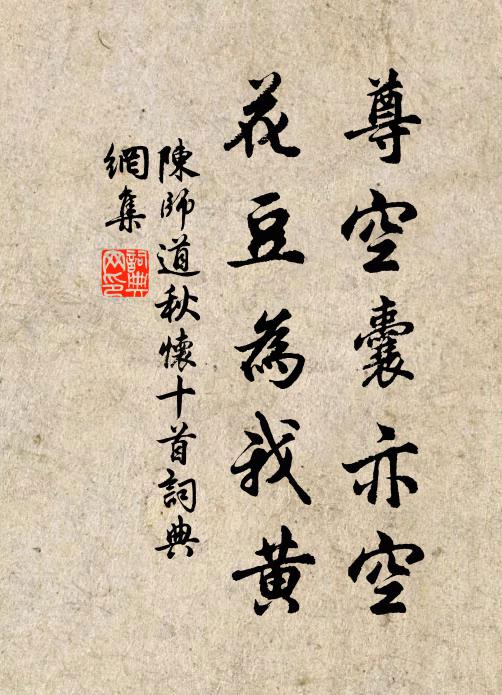 尊空囊亦空
花豆為我黃
陳師道秋懷十首詞典
網集
詞典
网印